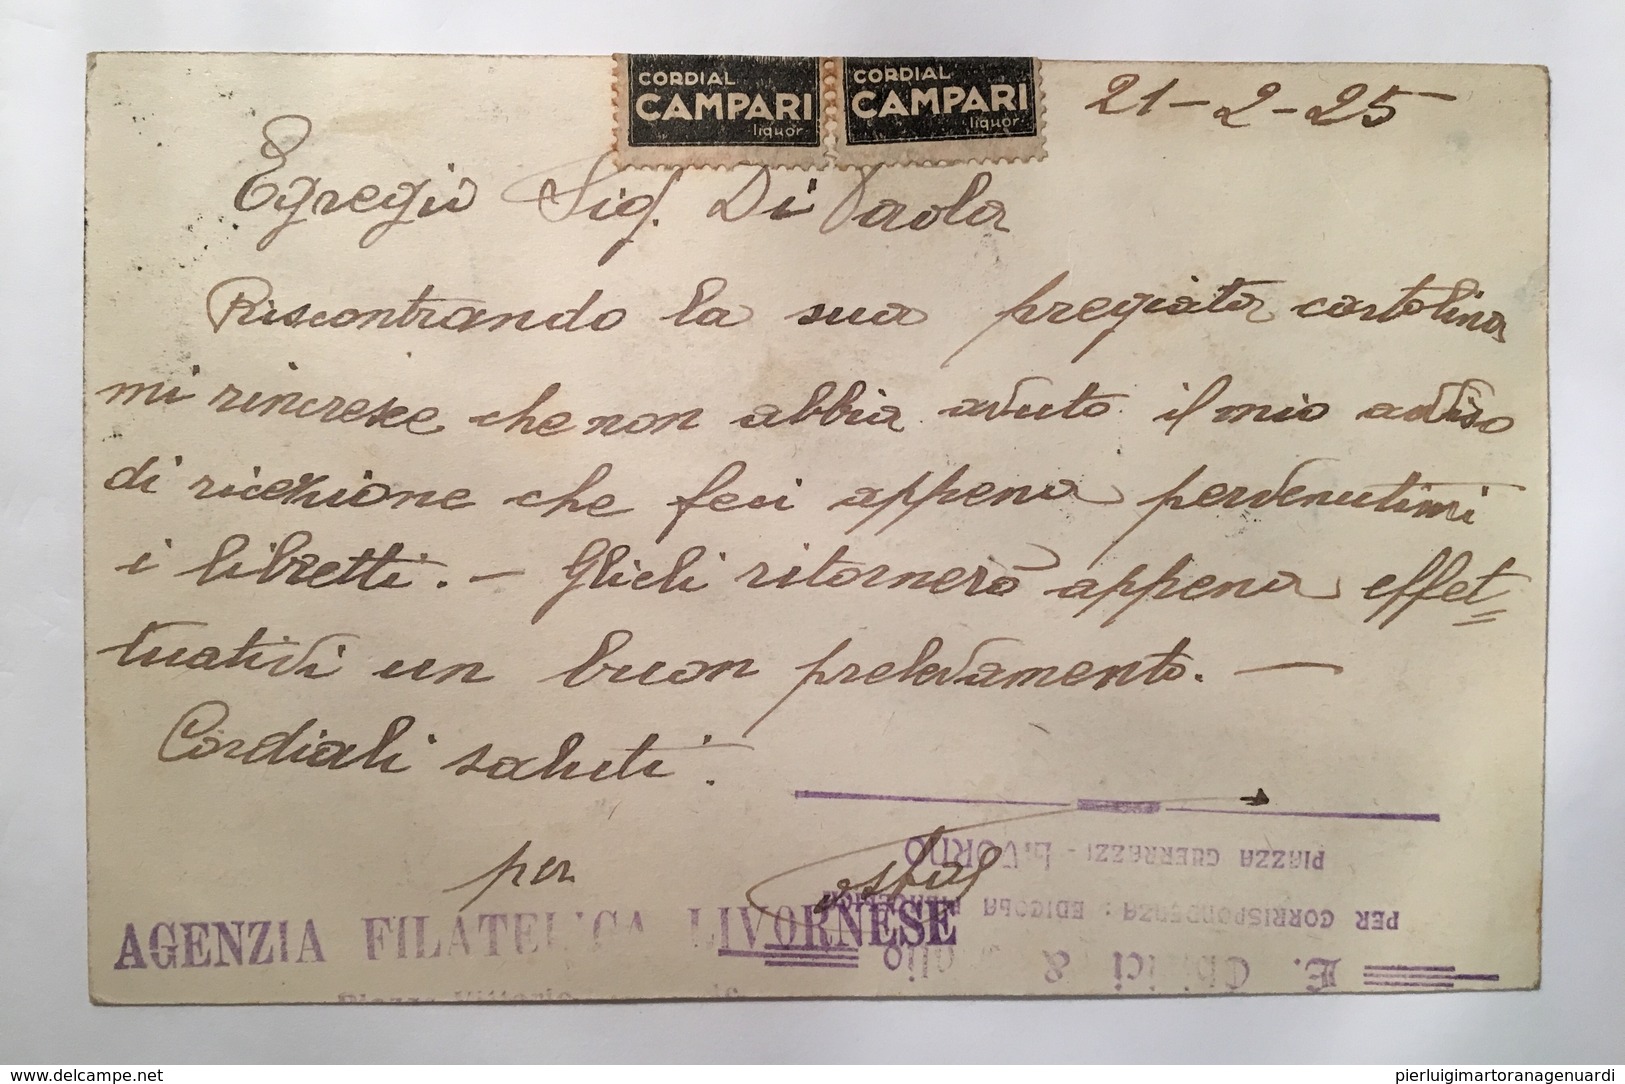 CORDIAL CAMPARI liquor
CORDIAL CAMPARI liquor
21-2-25
Egregio Sig. Di Paola
Riscontrando la sua pregiata cartolina
mi rincresce che non abbia avuto il mio avviso
di ricezione che feci appena pervenutimi
i libretti. — Glieli ritornerò appena effet=
tuativi un buon prelevamento. —
Cordiali saluti.
per
AGENZIA FILATELICA LIVORNESE
Piazza Vittorio
E. Chirici & Figlio
PER CORRISPONDENZA: EDICOLA
PIAZZA GUERRAZZI - LIVORNO
www.delcampe.net
pierluigimartoranagenuardi